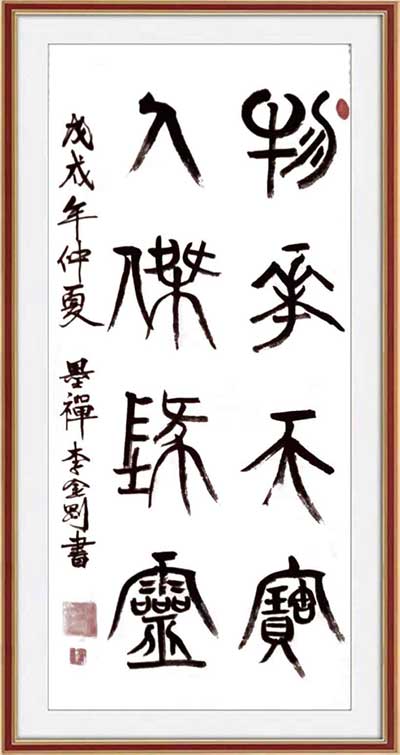 物華天寶
人傑地靈
戊戌年仲夏 墨禪李金剛書